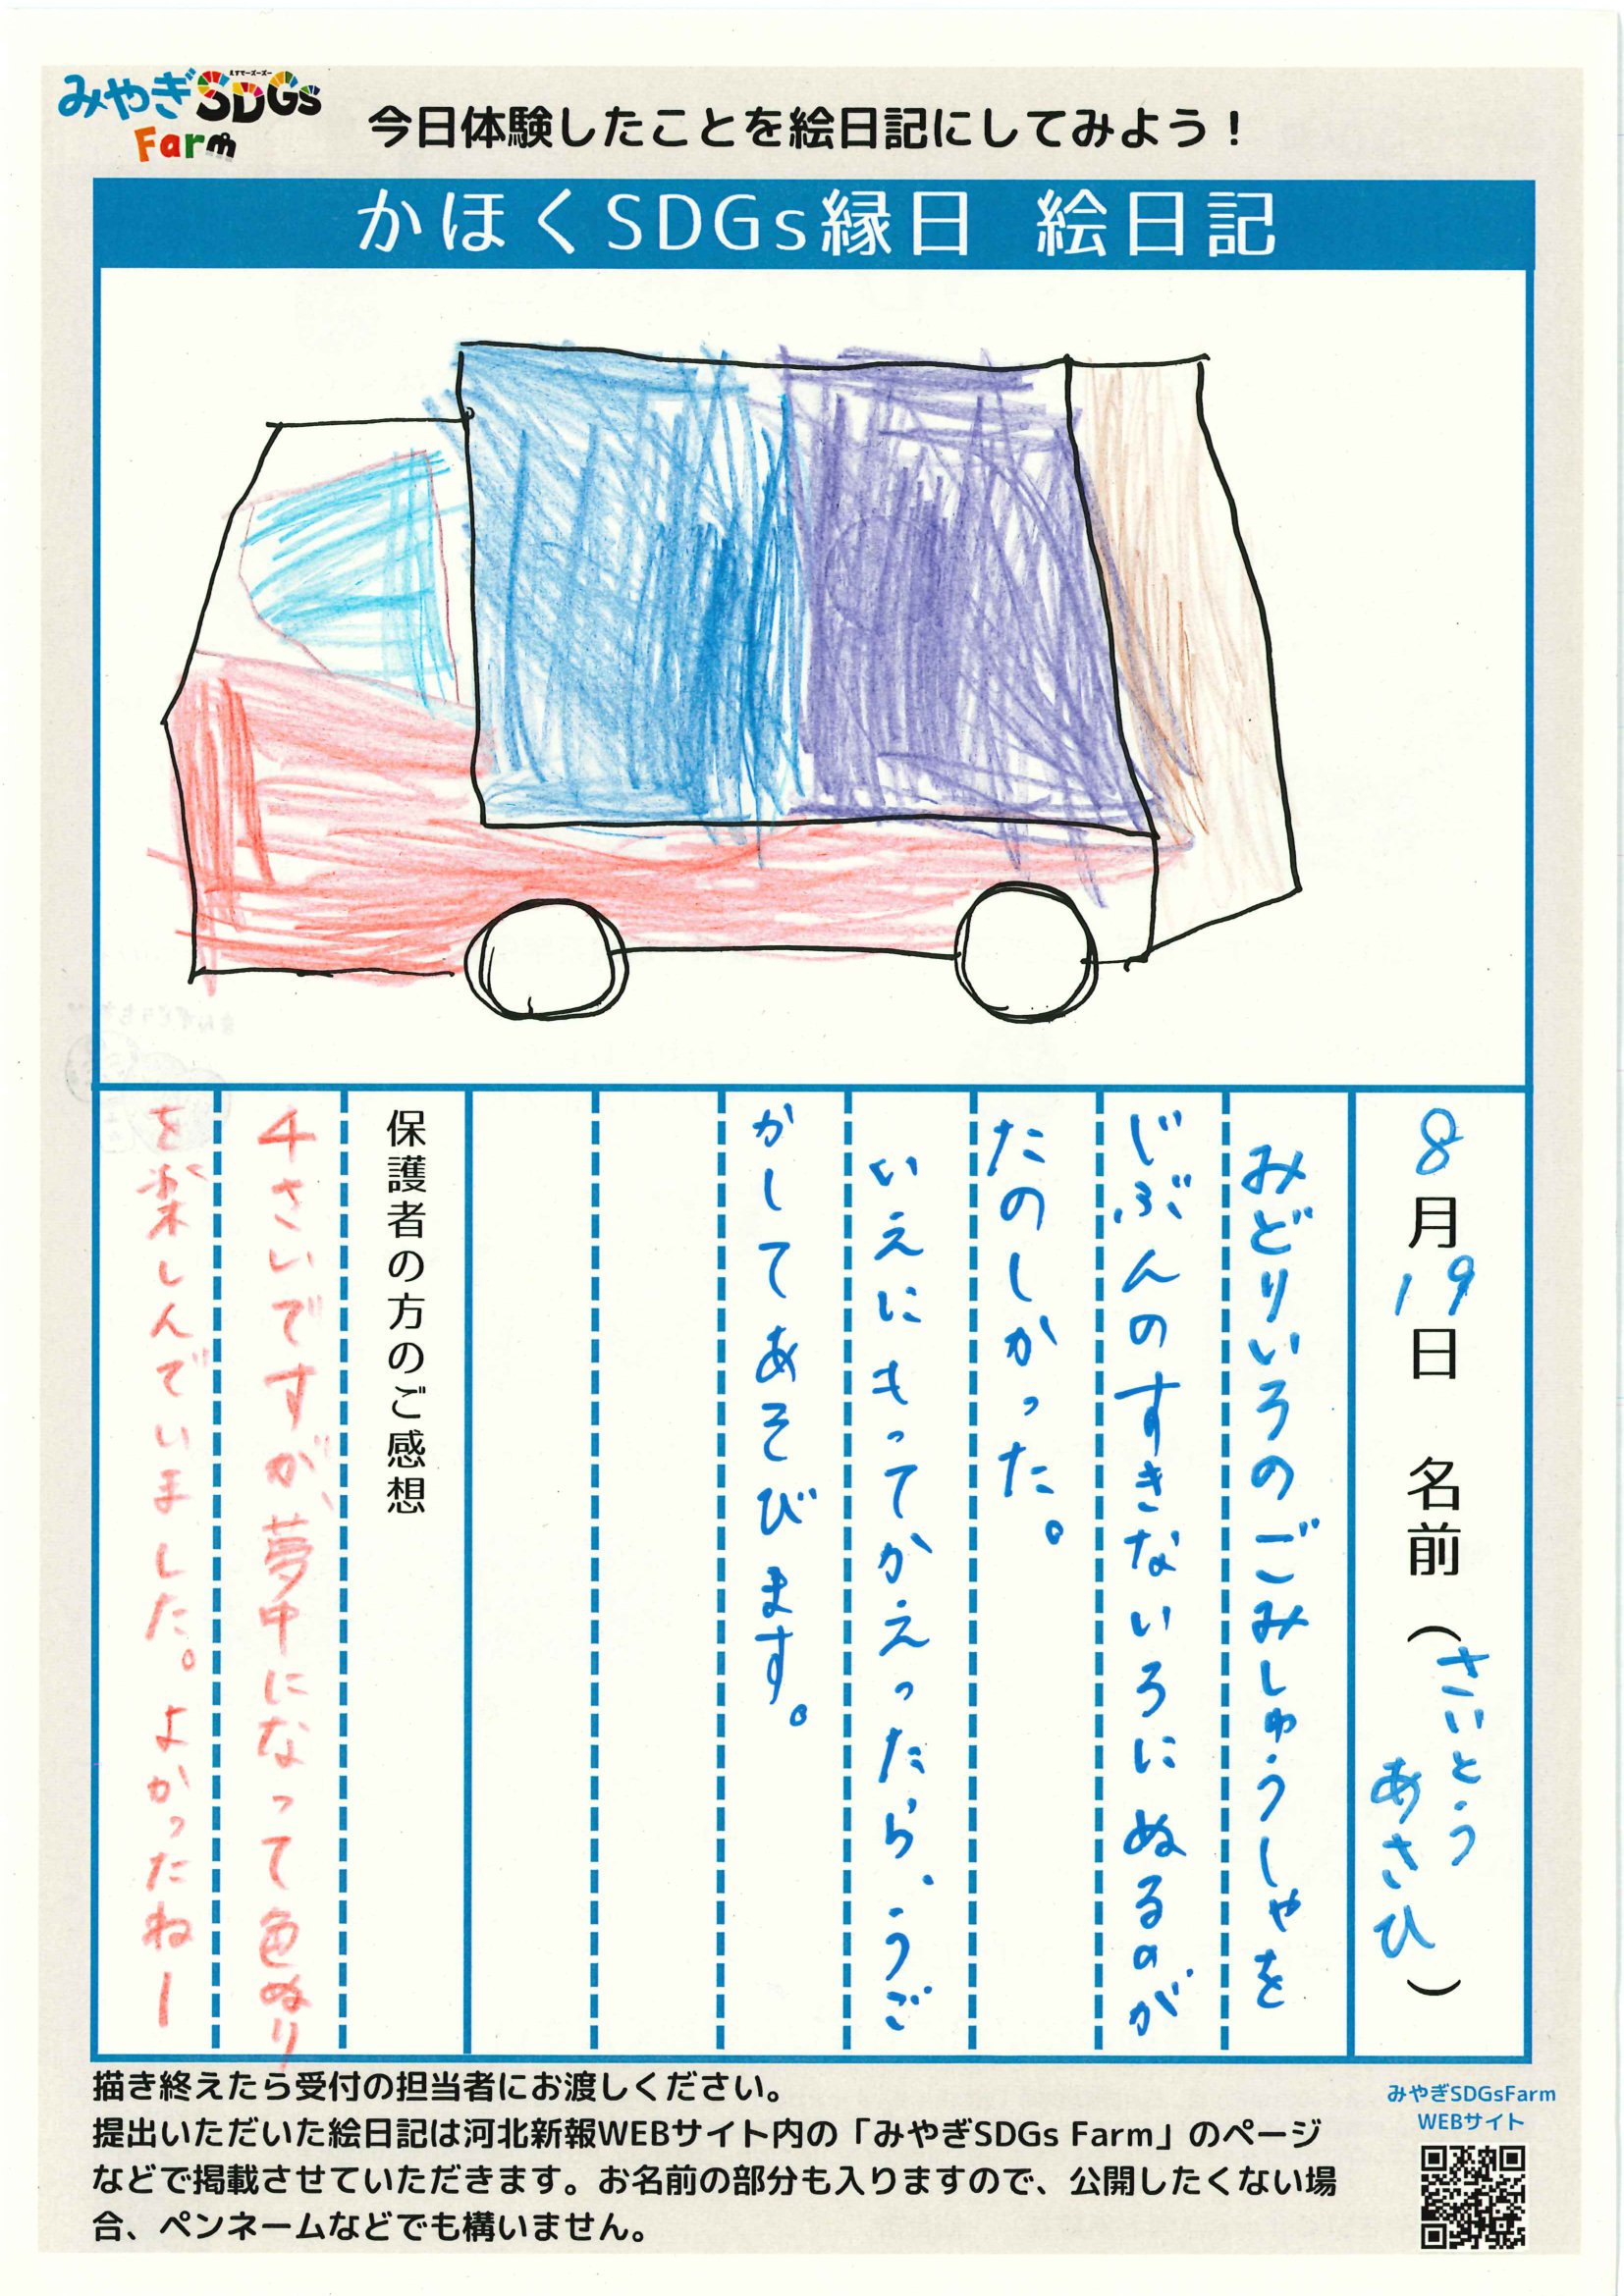 みやぎSDGs
えすでーずーずー
Farm
今日体験したことを絵日記にしてみよう！
かほくSDGs縁日 絵日記
8月19日 名前（さいとう
あさひ）
みどりいろのごみしゅうしゃを
じぶんのすきないろにぬるのが
たのしかった。
いえにもってかえったら、うご
かしてあそびます。
保護者の方のご感想
4さいですが、夢中になって色ぬり
を楽しんでいました。よかったねー
描き終えたら受付の担当者にお渡しください。
提出いただいた絵日記は河北新報WEBサイト内の「みやぎSDGs Farm」のページ
などで掲載させていただきます。お名前の部分も入りますので、公開したくない場
合、ペンネームなどでも構いません。
みやぎSDGsFarm
WEBサイト